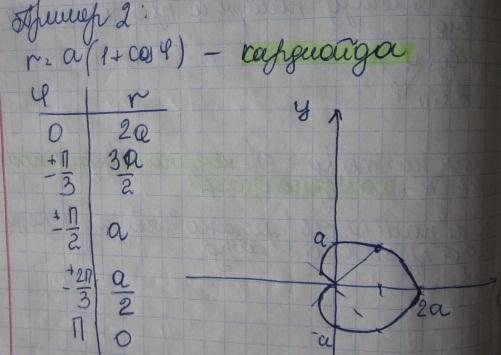 Пример 2:
r = a(1 + cos φ) – кардиойда
φ | r
0 | 2a
±π/3 | 3a/2
±π/2 | a
±2π/3 | a/2
π | 0
y
a
2a
-a